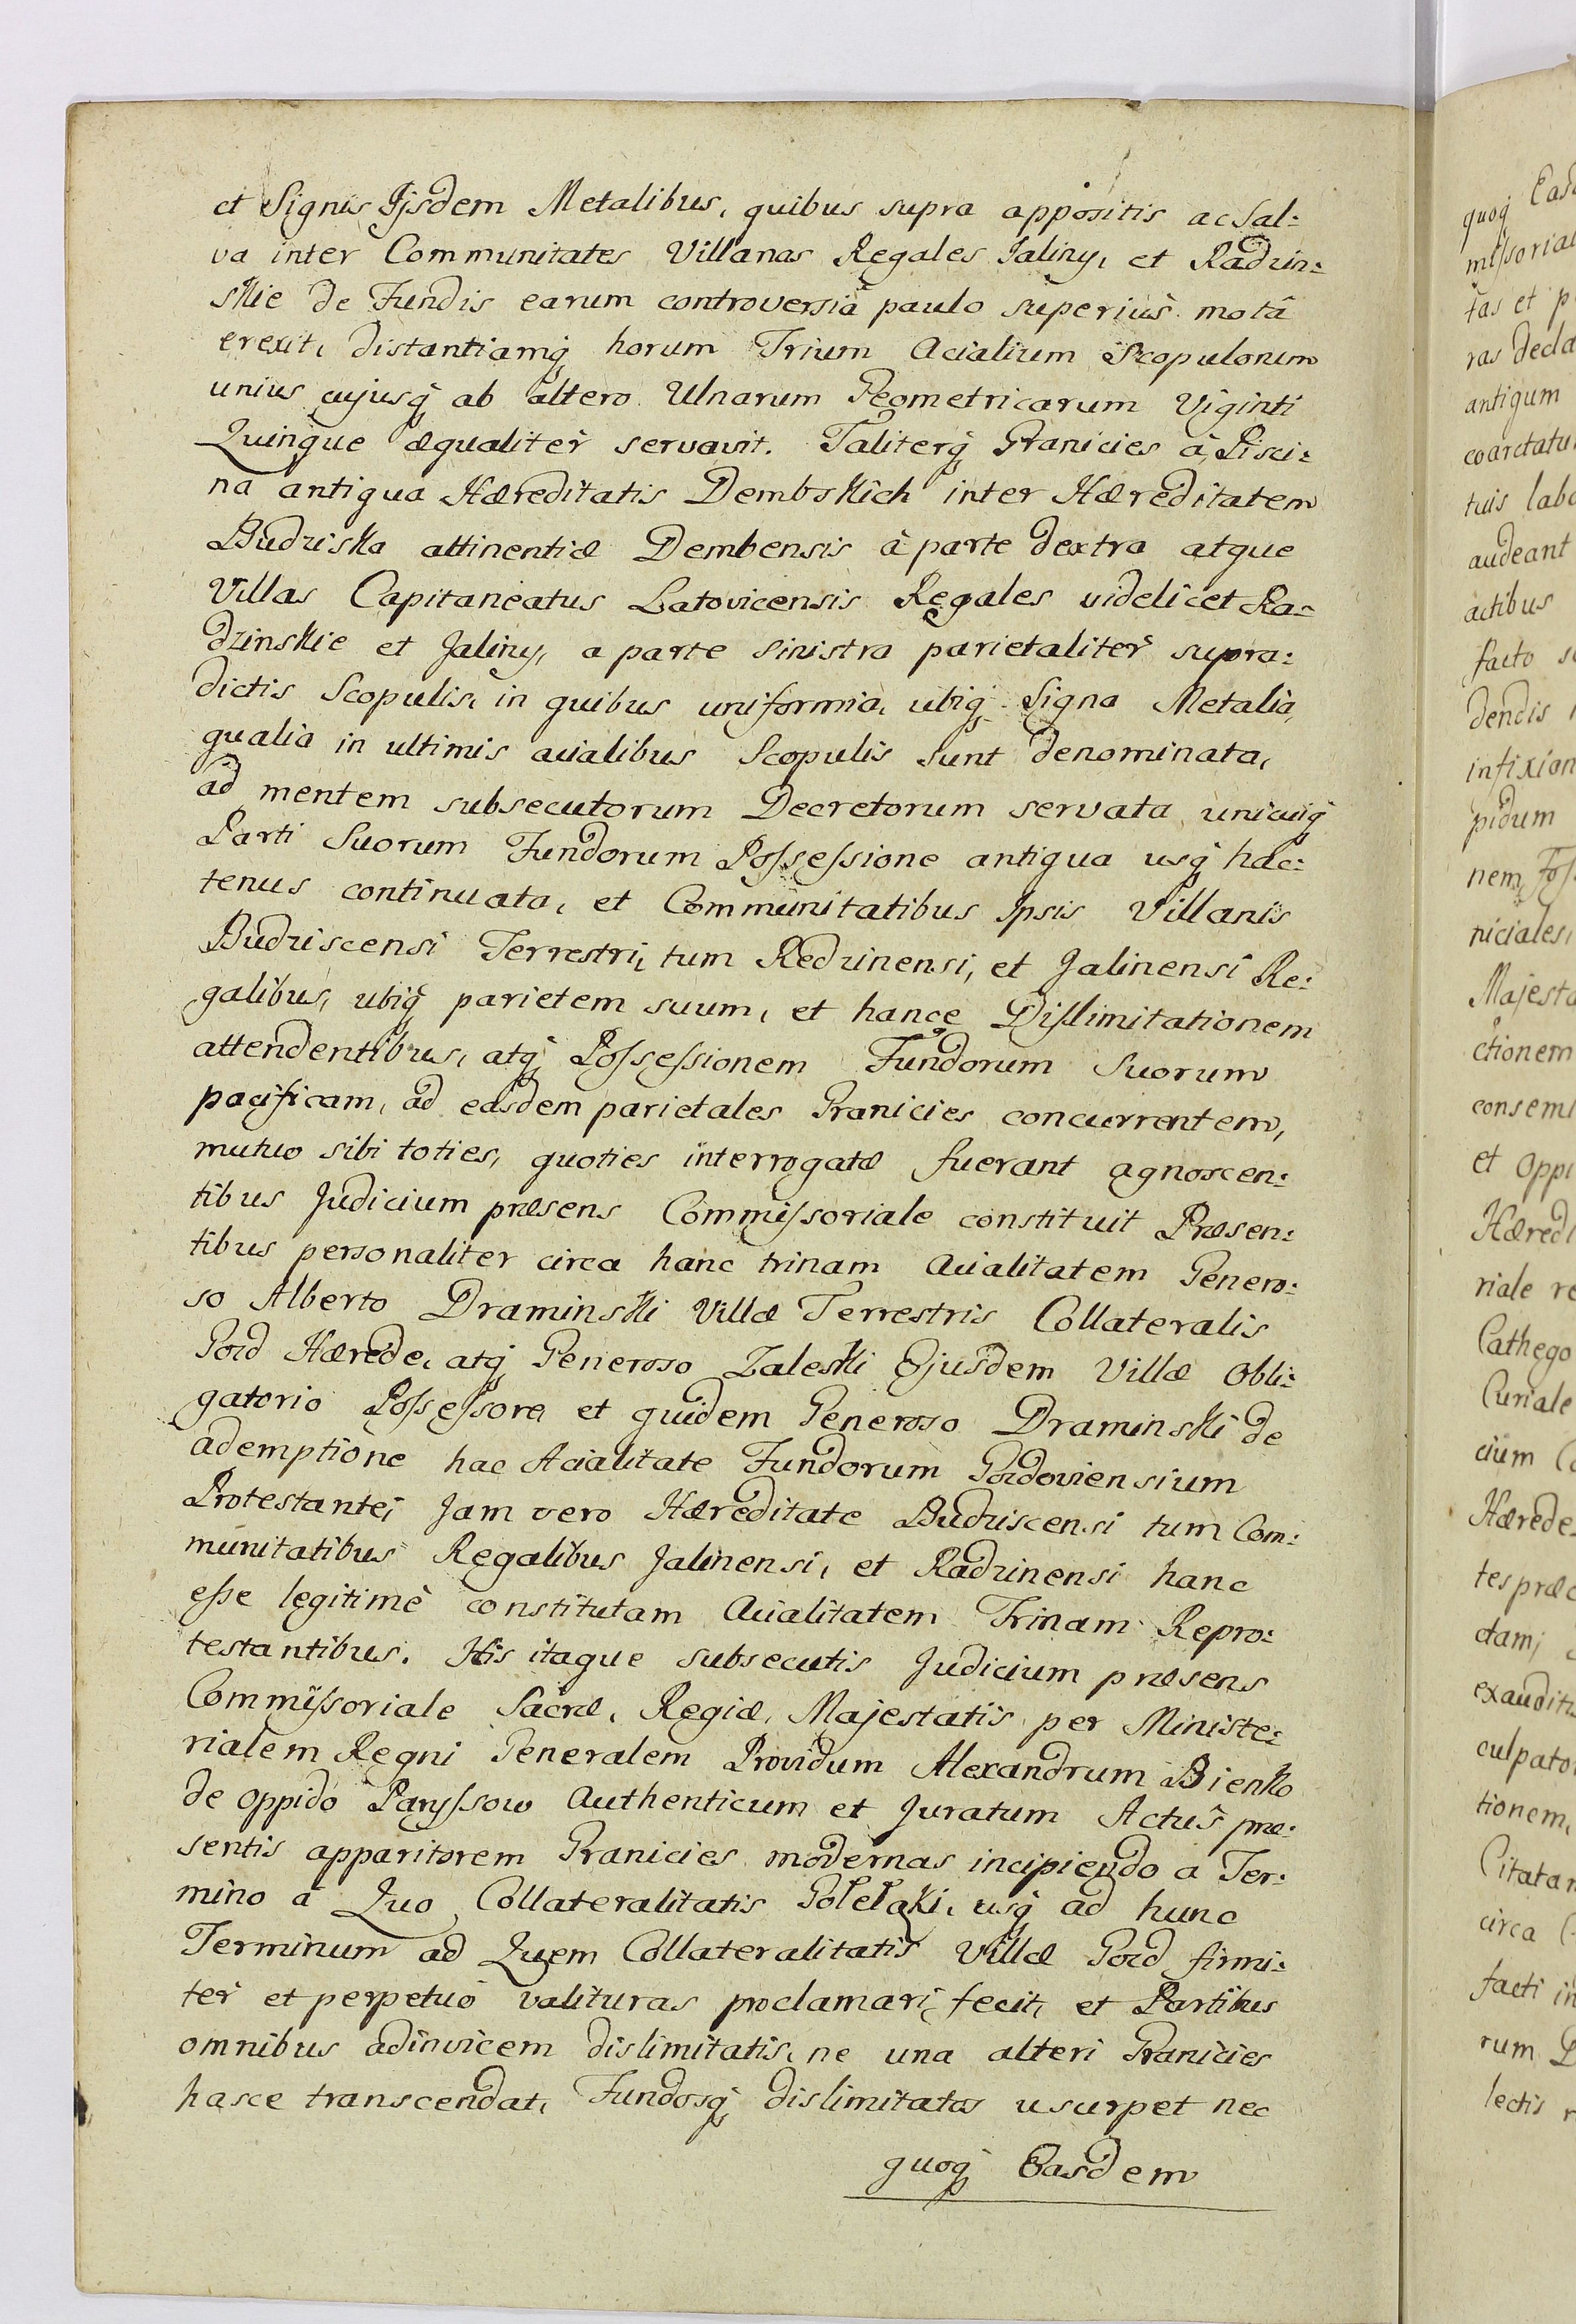 et Signis Ijsdem Metalibus, quibus supra appositis ac Sal:
va inter Communitates Villanas Regales Jaliny, et Radzin:
skie de Fundis earum controversiâ paulo superiùs motâ
erexit, distantiamq́ horum Trium Acialium Scopulorum
unius cujusq́ ab altero Ulnarum Geometricarum Viginti
Quinque æqualitèr servavit. Taliterq́ Granicies à Pisci:
na antiqua Hæreditatis Dembskich inter Hæreditatem
Budziska attinentiæ Dembensis à parte dextra atque
Villas Capitaneatus Latovicensis Regales videlicet Ra:
dzinskie et Jaliny, a parte sinistra parietalitèr supra:
dictis Scopulis, in quibus uniformia, ubiq́ Signa Metalia,
qualia in ultimis acialibus Scopulis sunt denominata,
ad mentem subsecutorum Decretorum servata unicuiq́
Parti Suorum Fundorum Possessione antiqua usq́ hac:
tenus continuata, et Communitatibus Ipsis Villanis
Budziscensi Terrestri, tum Redzinensi, et Jalinensi Re:
galibus, ubiq́ parietem suum, et hance Dislimitationem
attendentibus, atq́ Possessionem Fundorum Suorum
pacificam, ad easdem parietales Granicies concurrentem,
mutuo sibi toties, quoties interrogatæ fuerant agnoscen:
tibus Judicium præsens Commissoriale constituit Præsen:
tibus personaliter circa hanc trinam Acialitatem Genero:
so Alberto Draminski Villæ Terrestris Collateralis
Gozd Hærede, atq́ Generoso Zaleski Ejusdem Villæ Obli:
gatorio Possessore, et quidem Generoso Draminski de
ademptione hac Acialitate Fundorum Gozdoviensium
Protestante; Jam vero Hæreditate Budziscensi tum Com:
munitatibus Regalibus Jalinensi, et Radzinensi hanc
esse legitimè constitutam Acialitatem Trinam Repro:
testantibus. His itaque subsecutis Judicium præsens
Commissoriale Sacræ, Regiæ, Majestatis per Ministe:
rialem Regni Generalem Providum Alexandrum Bienko
de Oppido Paryssow Authenticum et Juratum Actûs præ:
sentis apparitorem Granicies modernas incipiendo a Ter:
mino à Quo Collateralitatis Gołełąki, usq́ ad hunc
Terminum ad Quem Collateralitatis Villæ Gozd firmi:
tèr et perpetuò valituras proclamari, fecit, et Partibus
omnibus adinvicem dislimitatis, ne una alteri Granicies
hasce transcendat, Fundosq́ dislimitatos usurpet nec
quoq́ Easdem
quoq́
missoria
tas et p
ras decla
antiqum
coarctatu
tuis labo
audeant
actibus
facto
dendis
infixion
pidum
nem,
niciales,
Majesta
ctionem
consemi
et Oppi
Hæredi
riale re
Cathego
Curiale
cium
Hærede
tes præ
ctam;
exaudit
culpato
tionem,
Citatar
circa
facti in
rum
lectis